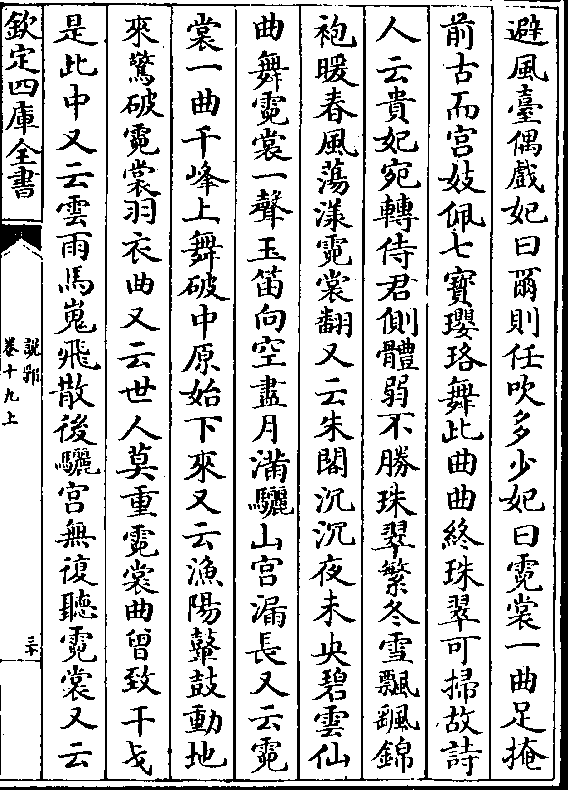 避風臺偶戲妃曰爾則任吹多少妃曰霓裳一曲足掩
前古而宮妓佩七寶瓔珞舞此曲曲終珠翠可掃故詩
人云貴妃宛轉侍君側體弱不勝珠翠繁冬雪飄颻錦
袍暖春風蕩漾霓裳翻又云朱閣沉沉夜未央碧雲仙
曲舞霓裳一聲玉笛向空盡月滿驪山宮漏長又云霓
裳一曲千峰上舞破中原始下來又云漁陽鼙鼓動地
來驚破霓裳羽衣曲又云世人莫重霓裳曲曾致干戈
是此中又云雲雨馬嵬飛散後驪宮無復聽霓裳又云
欽定四庫全書
說郛
卷十九上
三十